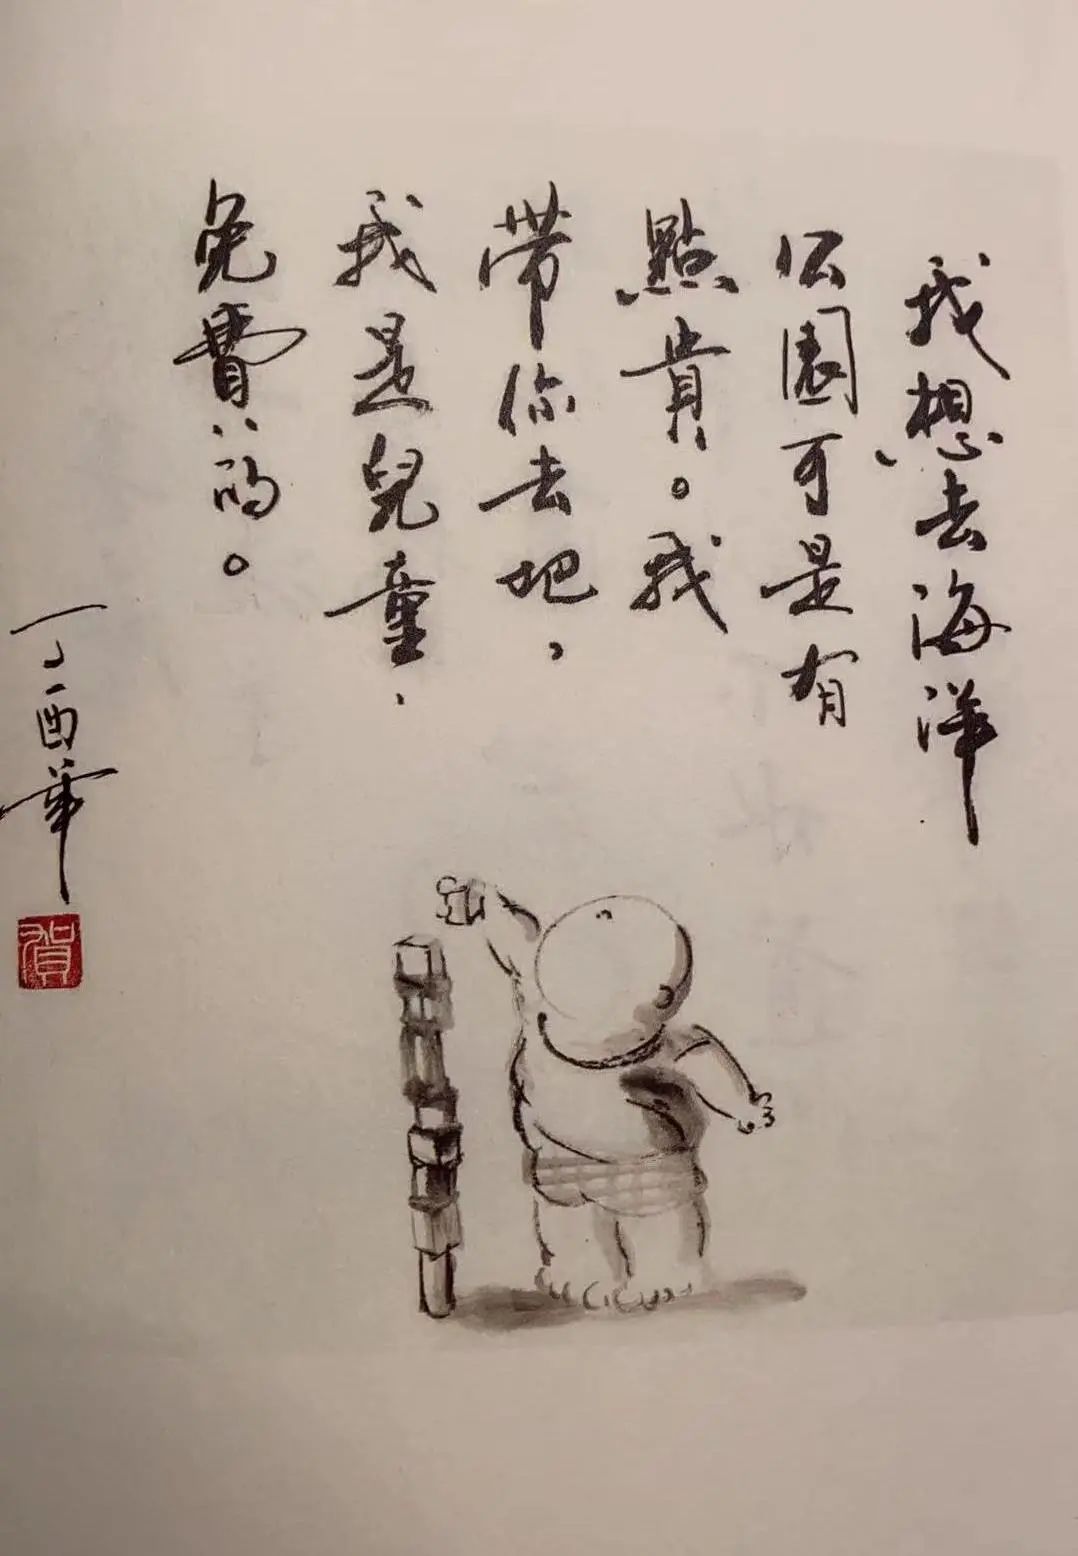 我想去海洋
公園可是有
點貴。我
带你去吧，
我是兒童，
免費的。
丁酉華
賀